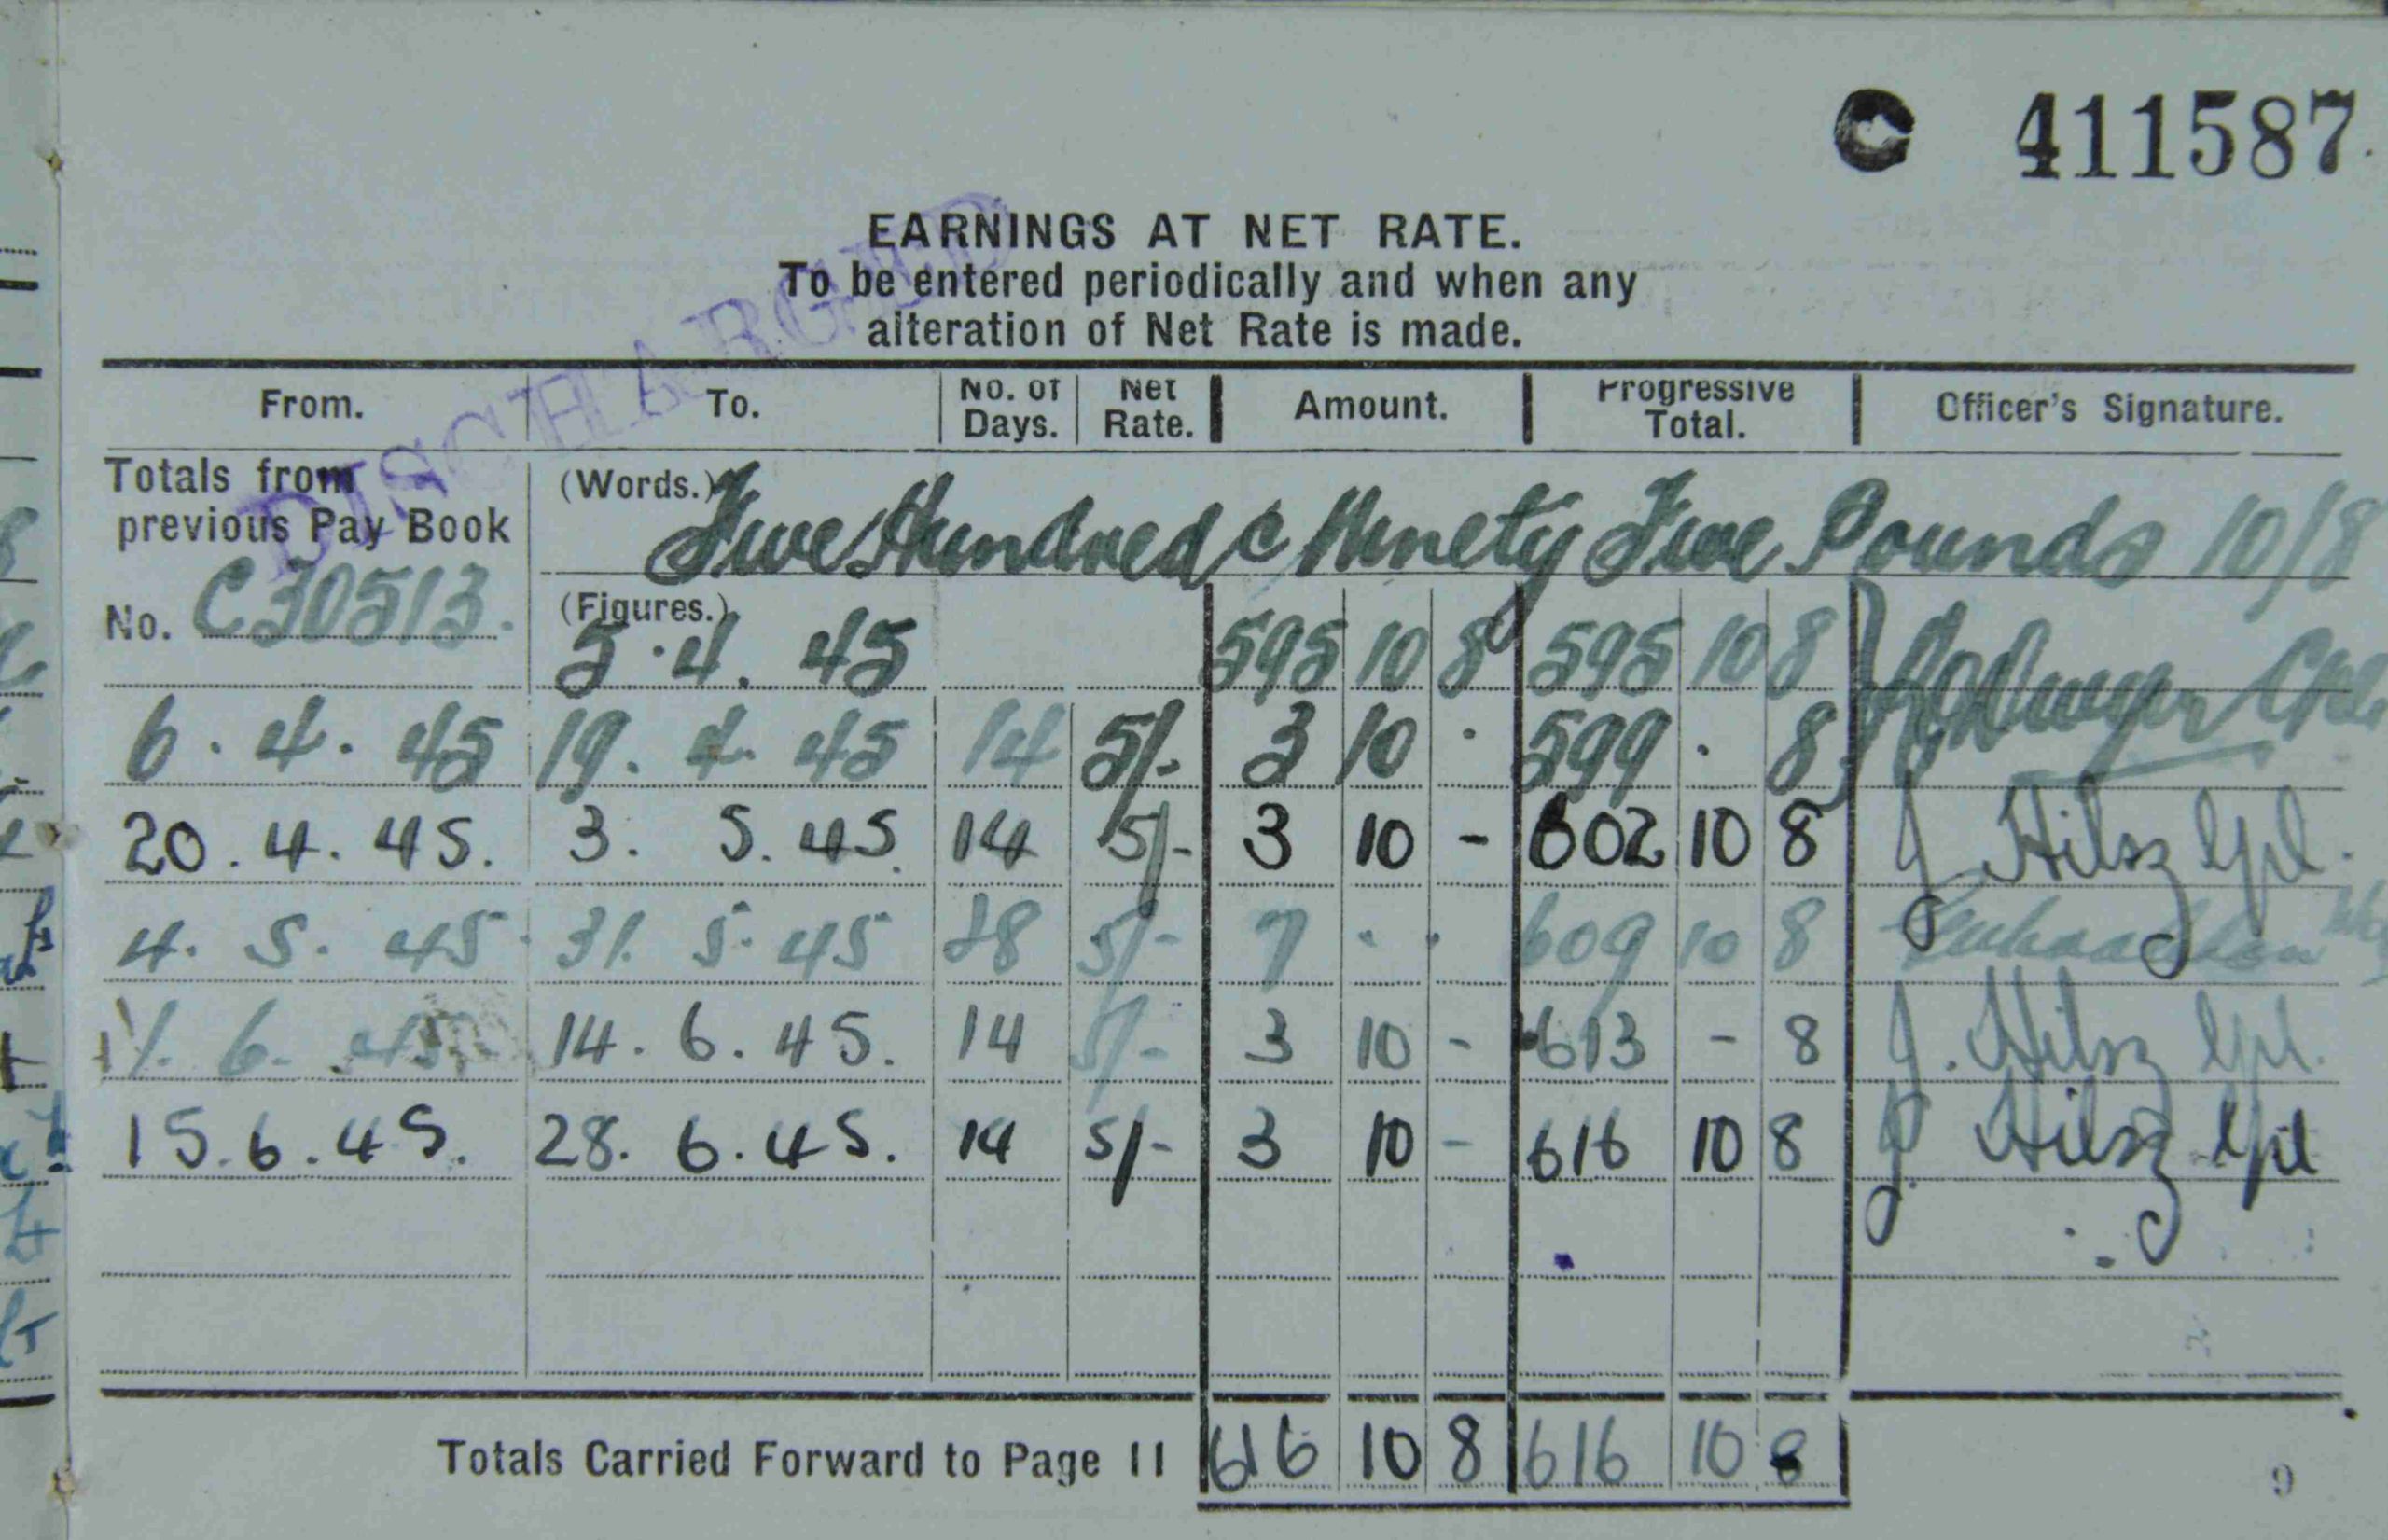 C 411587
DISCHARGED
EARNINGS AT NET RATE.
To be entered periodically and when any
alteration of Net Rate is made.
From. To. No. of Days. Net Rate. Amount. Progressive Total. Officer's Signature.
Totals from previous Pay Book (Words.) Five Hundred & Ninety Five Pounds 10/8
No. C30513. (Figures.) 5.4.45 595 10 8 595 10 8
6.4.45 19.4.45 14 5/- 3 10 · 599 · 8
20.4.45. 3.5.45. 14 5/- 3 10 - 602 10 8 J Hilsz Cpl.
4.5.45. 31.5.45 28 5/- 7 · · 609 10 8
1.6.45 14.6.45. 14 5/- 3 10 - 613 - 8 J. Hilsz Cpl.
15.6.45. 28.6.45. 14 5/- 3 10 - 616 10 8 J. Hilsz Cpl
Totals Carried Forward to Page 11 616 10 8 616 10 8
9